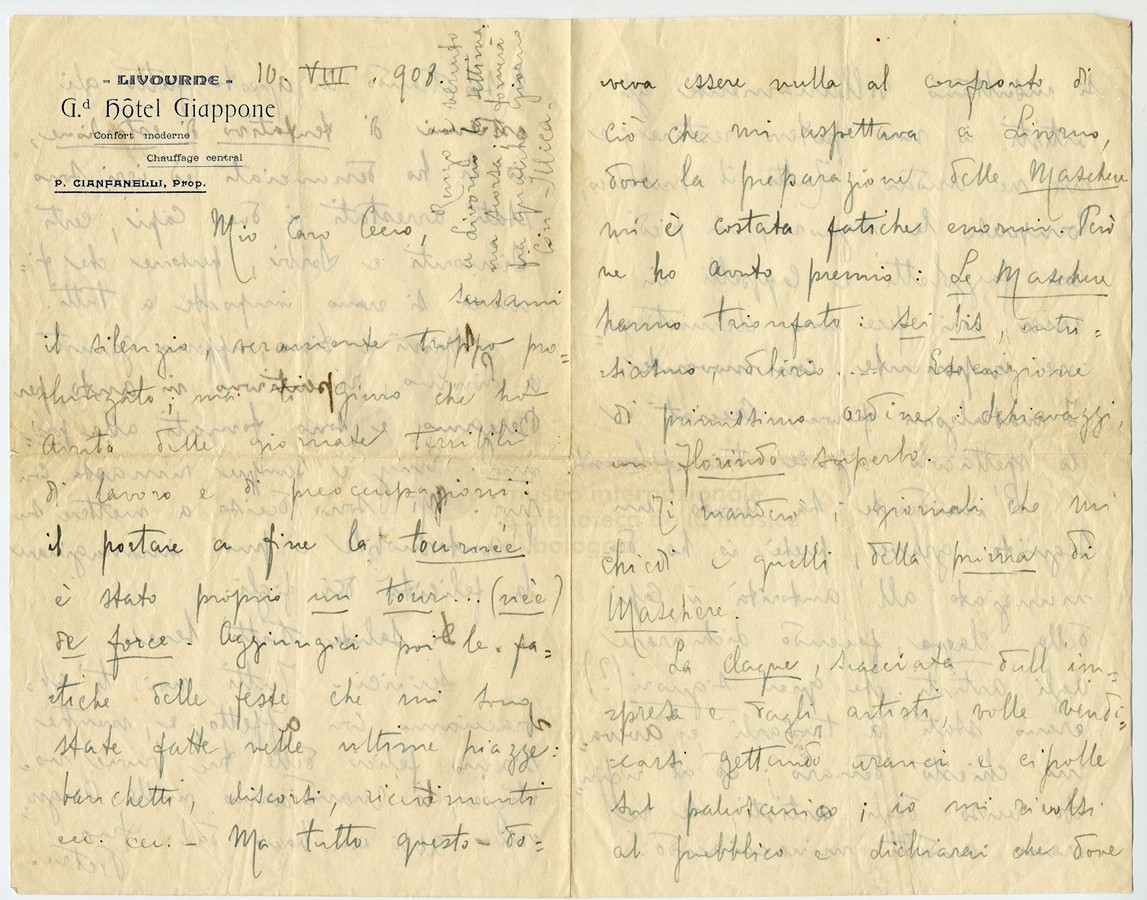 - LIVOURNE -
G.d Hôtel Giappone
Confort moderne
Chauffage central
P. CIANFANELLI, Prop.
10. VIII. 908.
Mio Caro Cecco,
scusami
il silenzio, veramente troppo pro=
lungato; ma ti giuro che ho
avuta delle giornate terribili
di lavoro e di preoccupazioni:
il portare a fine la tournée
è stato proprio un tour... (née)
de force. Aggiungici poi le fa=
tiche delle feste che mi sono
state fatte nelle ultime piazze:
banchetti, discorsi, ricevimenti
ecc. ecc. - Ma tutto questo do=
veva essere nulla al confronto di
ciò che mi aspettava a Livorno,
dove la preparazione delle Maschere
mi è costata fatiche enormi. Però
ne ho avuto premio: Le Maschere
hanno trionfato: sei bis, entu=
siasmo, delirio... Esecuzione
di primissimo ordine: Schiavazzi,
un Florindo superbo.
Ti manderò i giornali che mi
chiedi e quelli della prima di
Maschere.
La claque, scacciata dall'im=
presa e dagli artisti, volle vendi=
carsi gettando aranci e cipolle
sul palcoscenico; io mi rivolsi
al pubblico e dichiarai che dove
a Livorno la settima=
na scorsa;
con Illica.